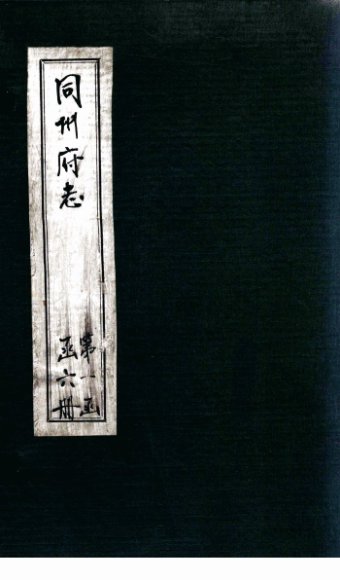 同州府志
第一函
函六册